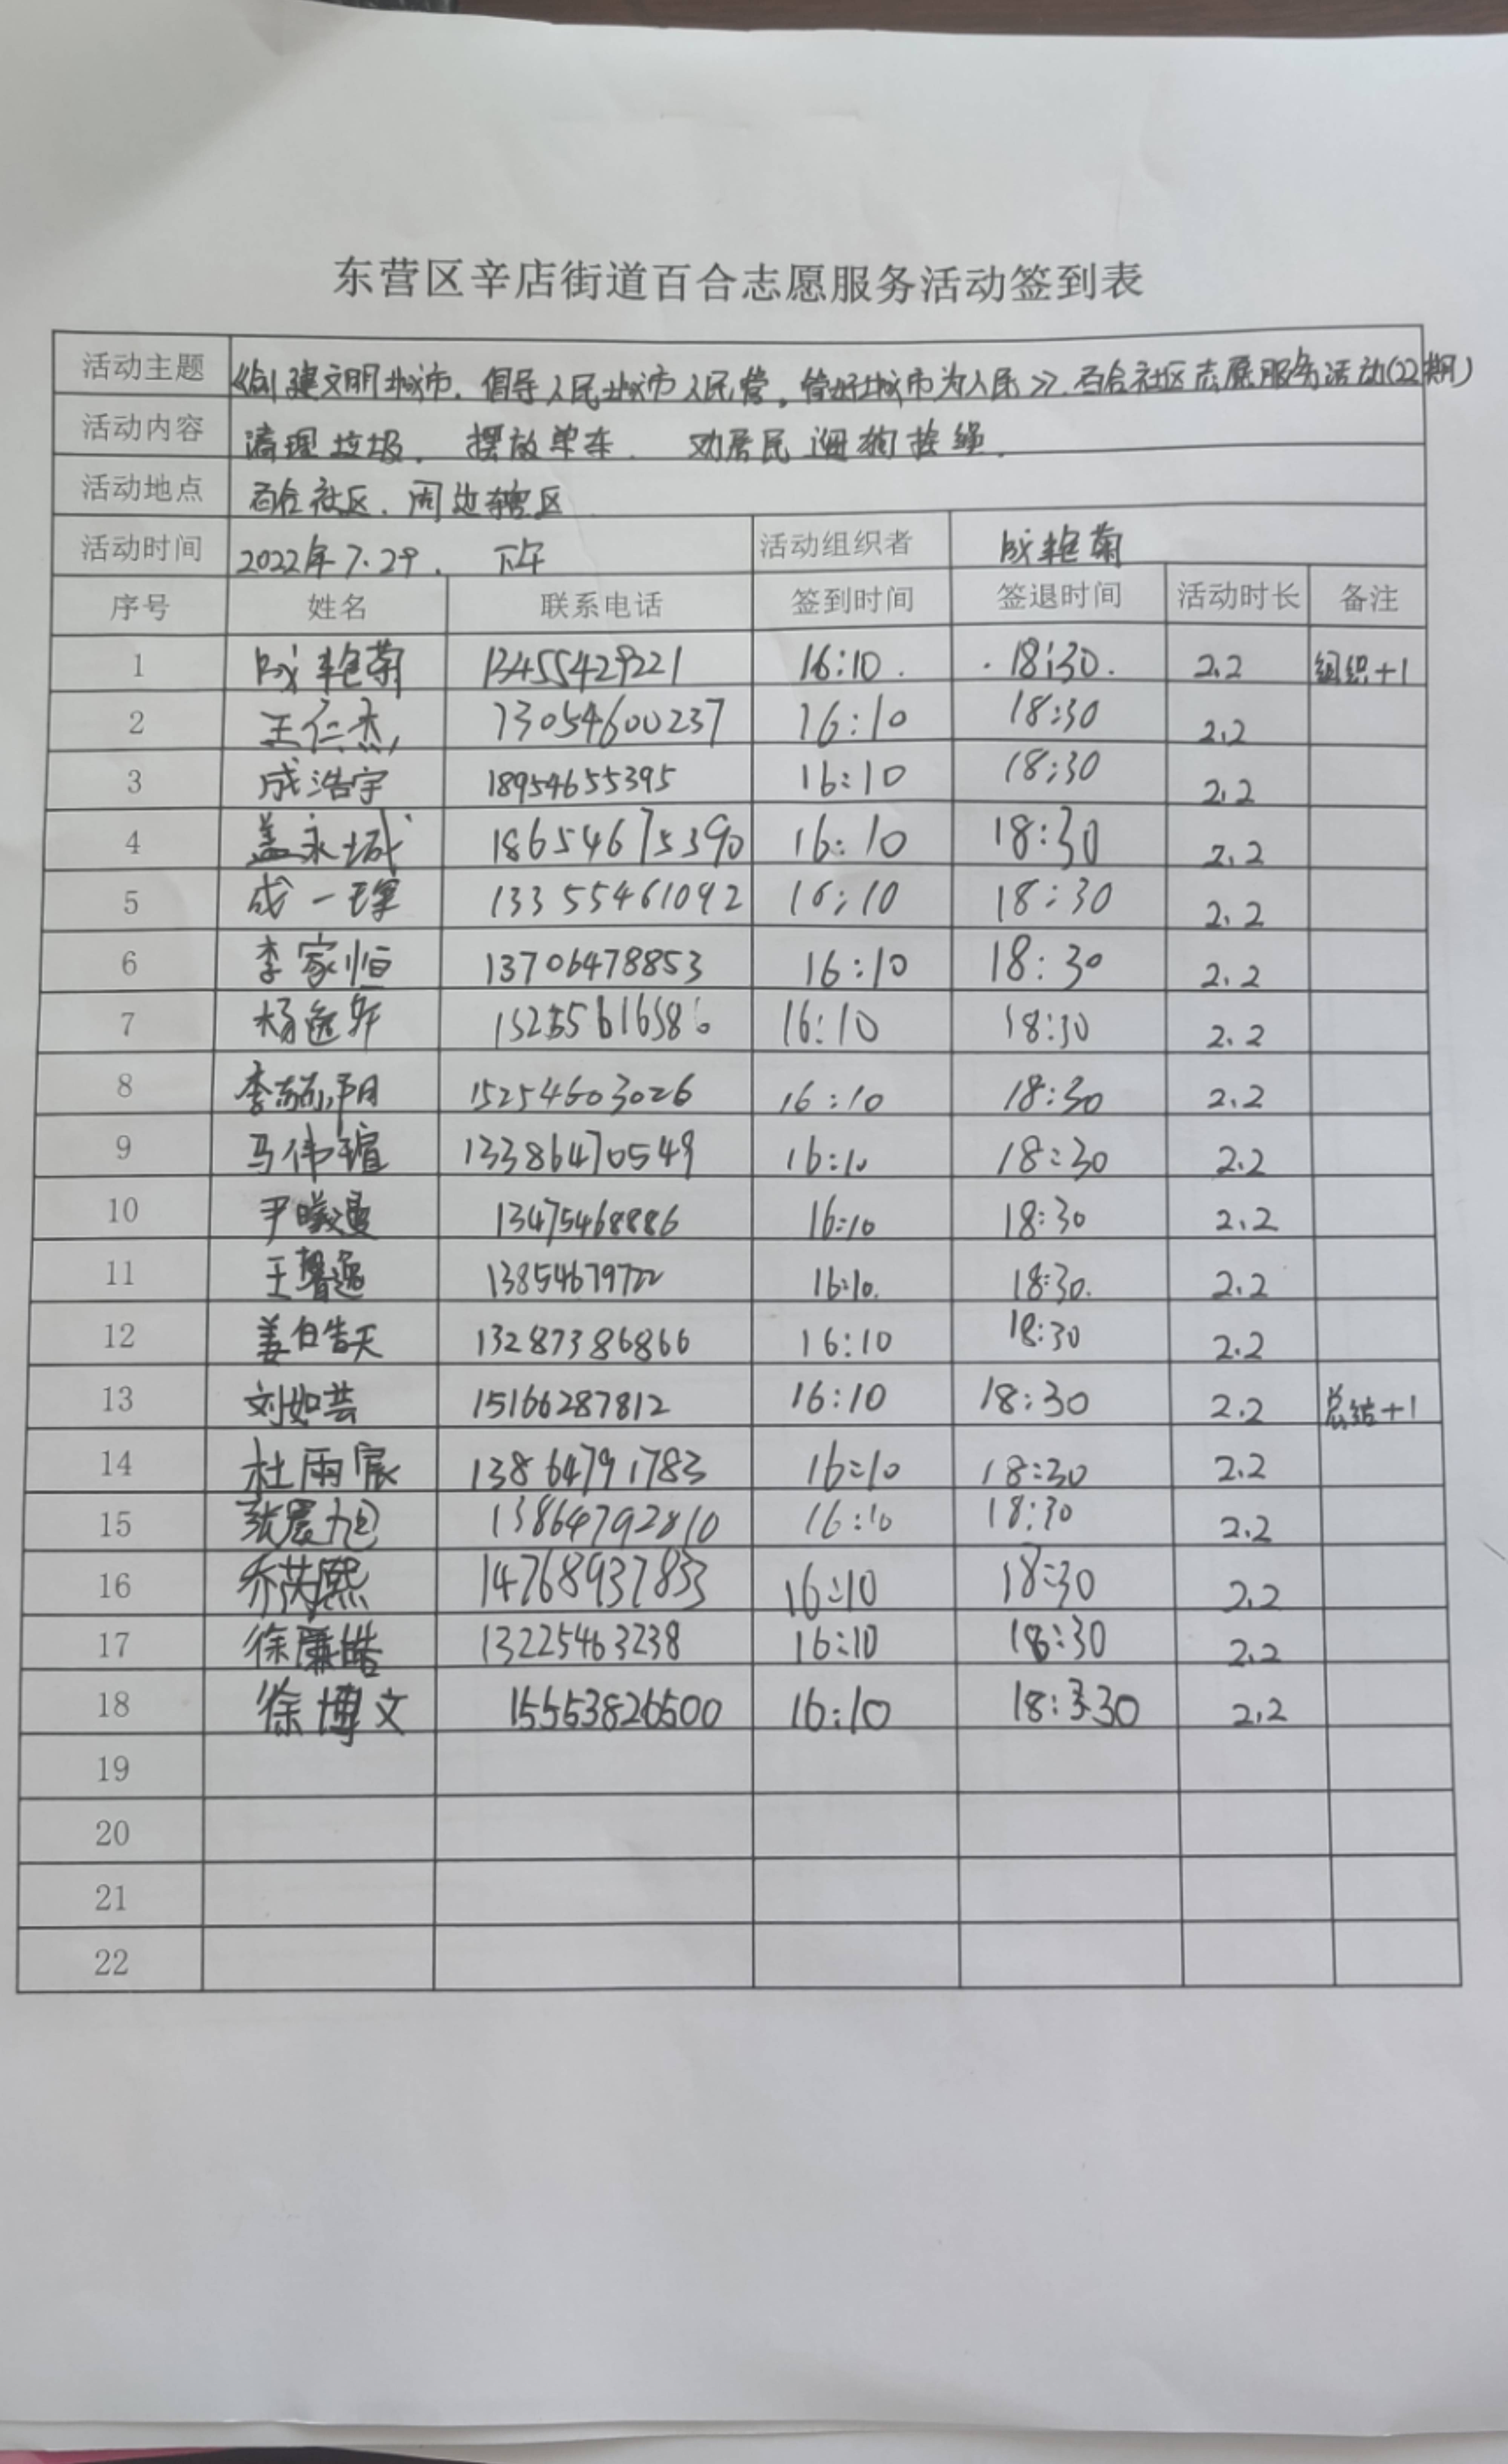 东营区辛店街道百合志愿服务活动签到表
活动主题 《创建文明城市.倡导人民城市人民管。管好城市为人民》.百合社区志愿服务活动(22期)
活动内容 清理垃圾. 摆放单车. 劝居民遛狗拴绳.
活动地点 百合社区.周边辖区
活动时间 2022年7.29. 下午 活动组织者 成艳菊
序号 姓名 联系电话 签到时间 签退时间 活动时长 备注
1 成艳菊 13455429221 16:10. .18:30. 2.2 组织+1
2 王仁杰 13054600237 16:10 18:30 2.2
3 成浩宇 18954655395 16:10 18:30 2.2
4 盖永城 18654675390 16:10 18:30 2.2
5 成一 13355461092 16:10 18:30 2.2
6 李家恒 13706478853 16:10 18:30 2.2
7 杨逸轩 16:10 18:30 2.2
8 李 阳 15254603026 16:10 18:30 2.2
9 马伟瑄 13386470549 16:10 18:30 2.2
10 尹曦 13475468886 16:10 18:30 2.2
11 王馨逸 13854679722 16:10. 18:30. 2.2
12 姜皓天 13287386866 16:10 18:30 2.2
13 刘如芸 15166287812 16:10 18:30 2.2 总结+1
14 杜雨宸 13864791783 16:10 18:30 2.2
15 张晨旭 13864792810 16:10 18:30 2.2
16 乔 熙 14768937833 16:10 18:30 2.2
17 徐 皓 13225463238 16:10 18:30 2.2
18 徐博文 15553826500 16:10 18:330 2.2
19
20
21
22